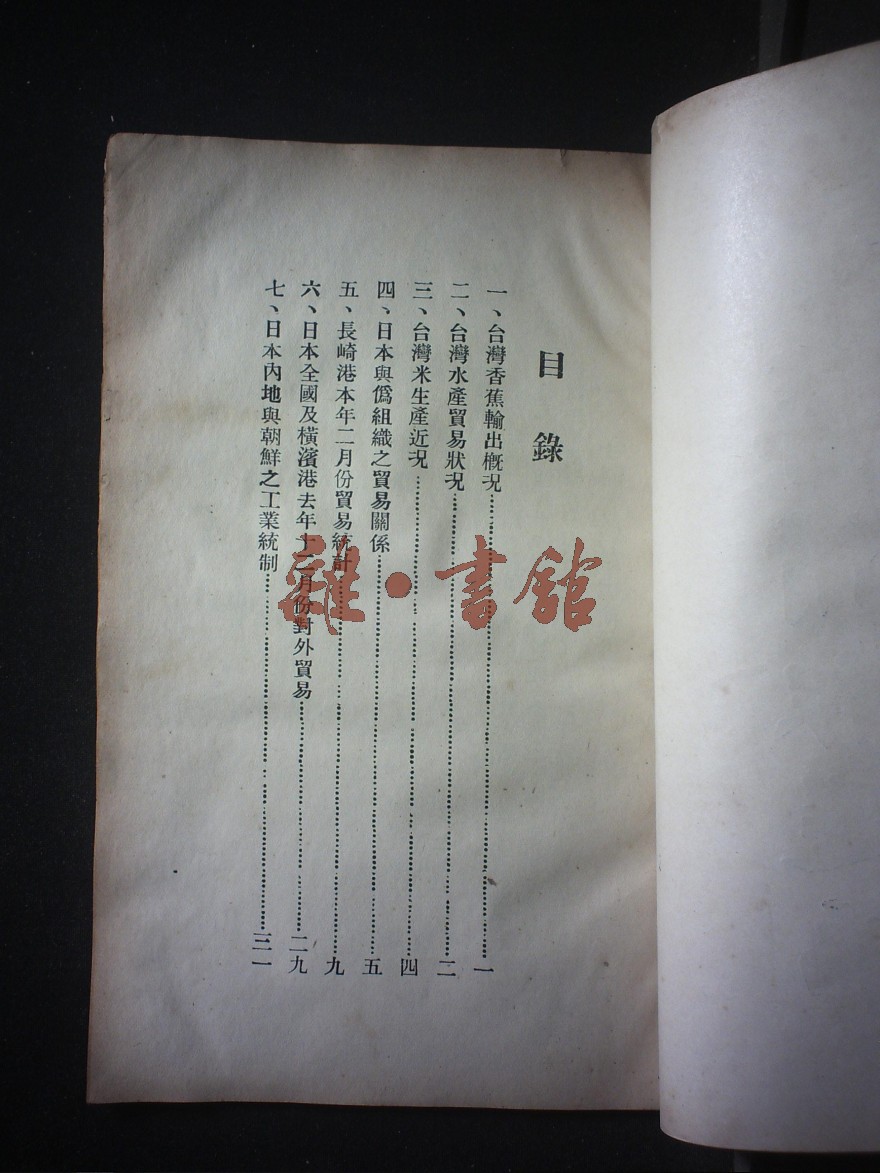 目錄
一、台灣香蕉輸出概况……一
二、台灣水產貿易狀况……二
三、台灣米生產近况……四
四、日本與僞組織之貿易關係……五
五、長崎港本年二月份貿易統計……九
六、日本全國及橫濱港去年十二月份對外貿易……二九
七、日本內地與朝鮮之工業統制……三一
雜·書館